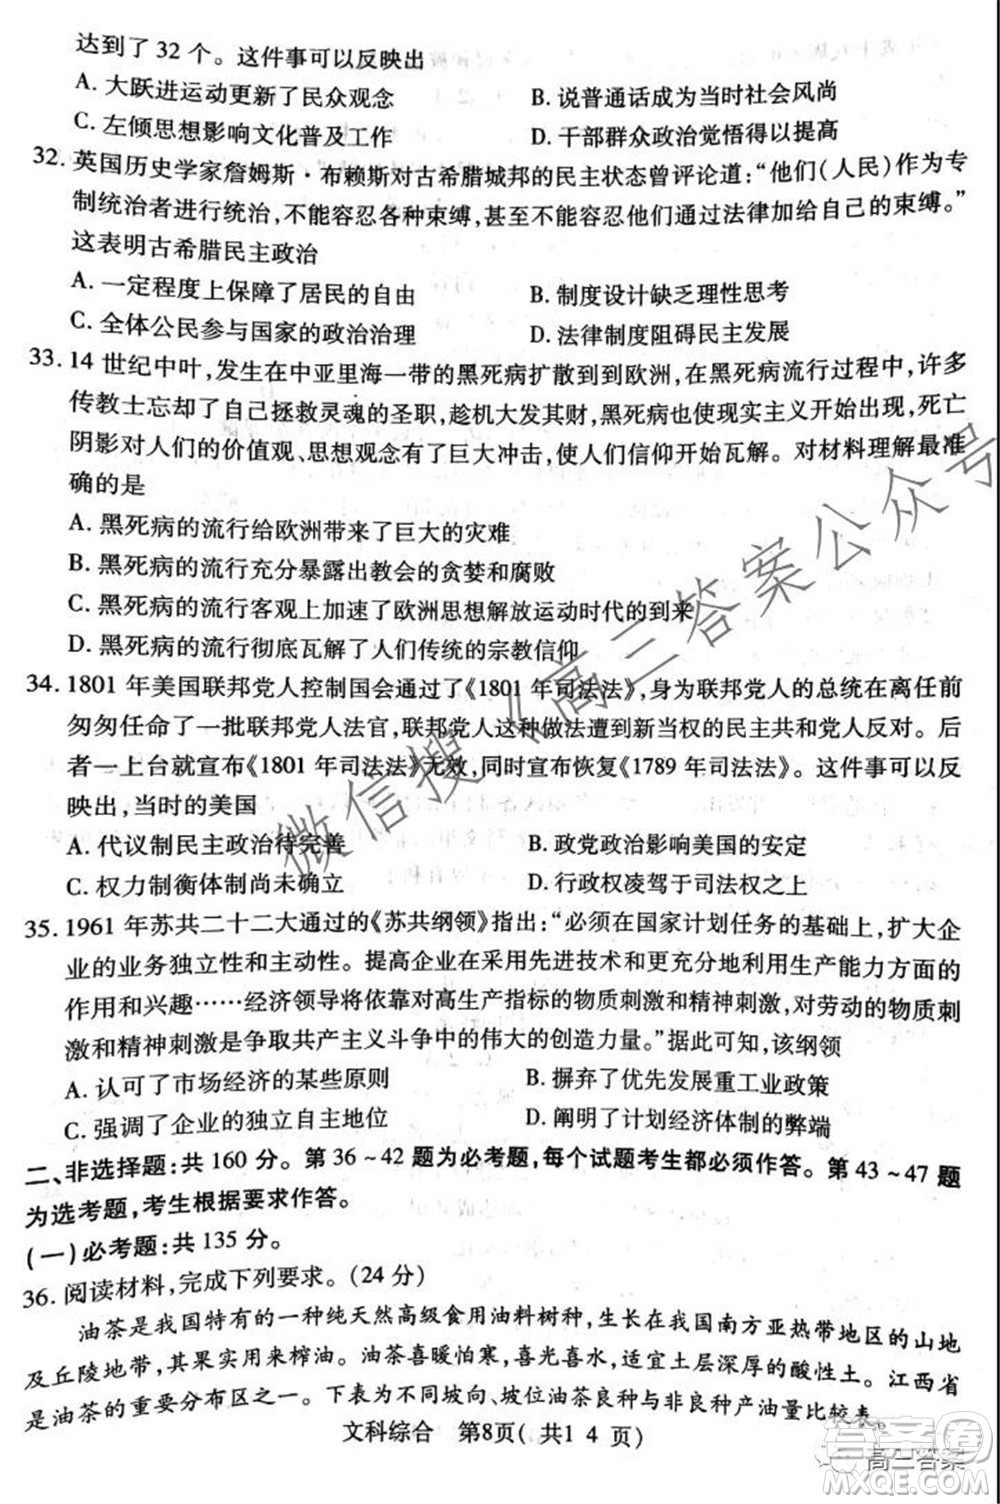 达到了 32 个。这件事可以反映出
A. 大跃进运动更新了民众观念 B. 说普通话成为当时社会风尚
C. 左倾思想影响文化普及工作 D. 干部群众政治觉悟得以提高
32. 英国历史学家詹姆斯·布赖斯对古希腊城邦的民主状态曾评论道：“他们(人民)作为专
制统治者进行统治，不能容忍各种束缚，甚至不能容忍他们通过法律加给自己的束缚。”
这表明古希腊民主政治
A. 一定程度上保障了居民的自由 B. 制度设计缺乏理性思考
C. 全体公民参与国家的政治治理 D. 法律制度阻碍民主发展
33. 14 世纪中叶，发生在中亚里海一带的黑死病扩散到到欧洲，在黑死病流行过程中，许多
传教士忘却了自己拯救灵魂的圣职，趁机大发其财，黑死病也使现实主义开始出现，死亡
阴影对人们的价值观、思想观念有了巨大冲击，使人们信仰开始瓦解。对材料理解最准
确的是
A. 黑死病的流行给欧洲带来了巨大的灾难
B. 黑死病的流行充分暴露出教会的贪婪和腐败
C. 黑死病的流行客观上加速了欧洲思想解放运动时代的到来
D. 黑死病的流行彻底瓦解了人们传统的宗教信仰
34. 1801 年美国联邦党人控制国会通过了《1801 年司法法》，身为联邦党人的总统在离任前
匆匆任命了一批联邦党人法官，联邦党人这种做法遭到新当权的民主共和党人反对。后
者一上台就宣布《1801 年司法法》无效，同时宣布恢复《1789 年司法法》。这件事可以反
映出，当时的美国
A. 代议制民主政治待完善 B. 政党政治影响美国的安定
C. 权力制衡体制尚未确立 D. 行政权凌驾于司法权之上
35. 1961 年苏共二十二大通过的《苏共纲领》指出：“必须在国家计划任务的基础上，扩大
企业的业务独立性和主动性。提高企业在采用先进技术和更充分地利用生产能力方面的
作用和兴趣……经济领导将依靠对高生产指标的物质刺激和精神刺激，对劳动的物质刺
激和精神刺激是争取共产主义斗争中的伟大的创造力量。”据此可知，该纲领
A. 认可了市场经济的某些原则 B. 摒弃了优先发展重工业政策
C. 强调了企业的独立自主地位 D. 阐明了计划经济体制的弊端
二、非选择题：共 160 分。第 36～42 题为必考题，每个试题考生都必须作答。第 43～47 题
为选考题，考生根据要求作答。
(一)必考题：共 135 分。
36. 阅读材料，完成下列要求。(24 分)
油茶是我国特有的一种纯天然高级食用油料树种，生长在我国南方亚热带地区的山地
及丘陵地带，其果实可用来榨油。油茶喜暖怕寒，喜光喜水，适宜土层深厚的酸性土。江西省
是油茶的重要分布区之一。下表为不同坡向、坡位油茶良种与非良种产油量比较表。
文科综合 第8页( 共1 4 页)
微信搜《高三答案公众号
答案卷
高三答案
MXQE.COM